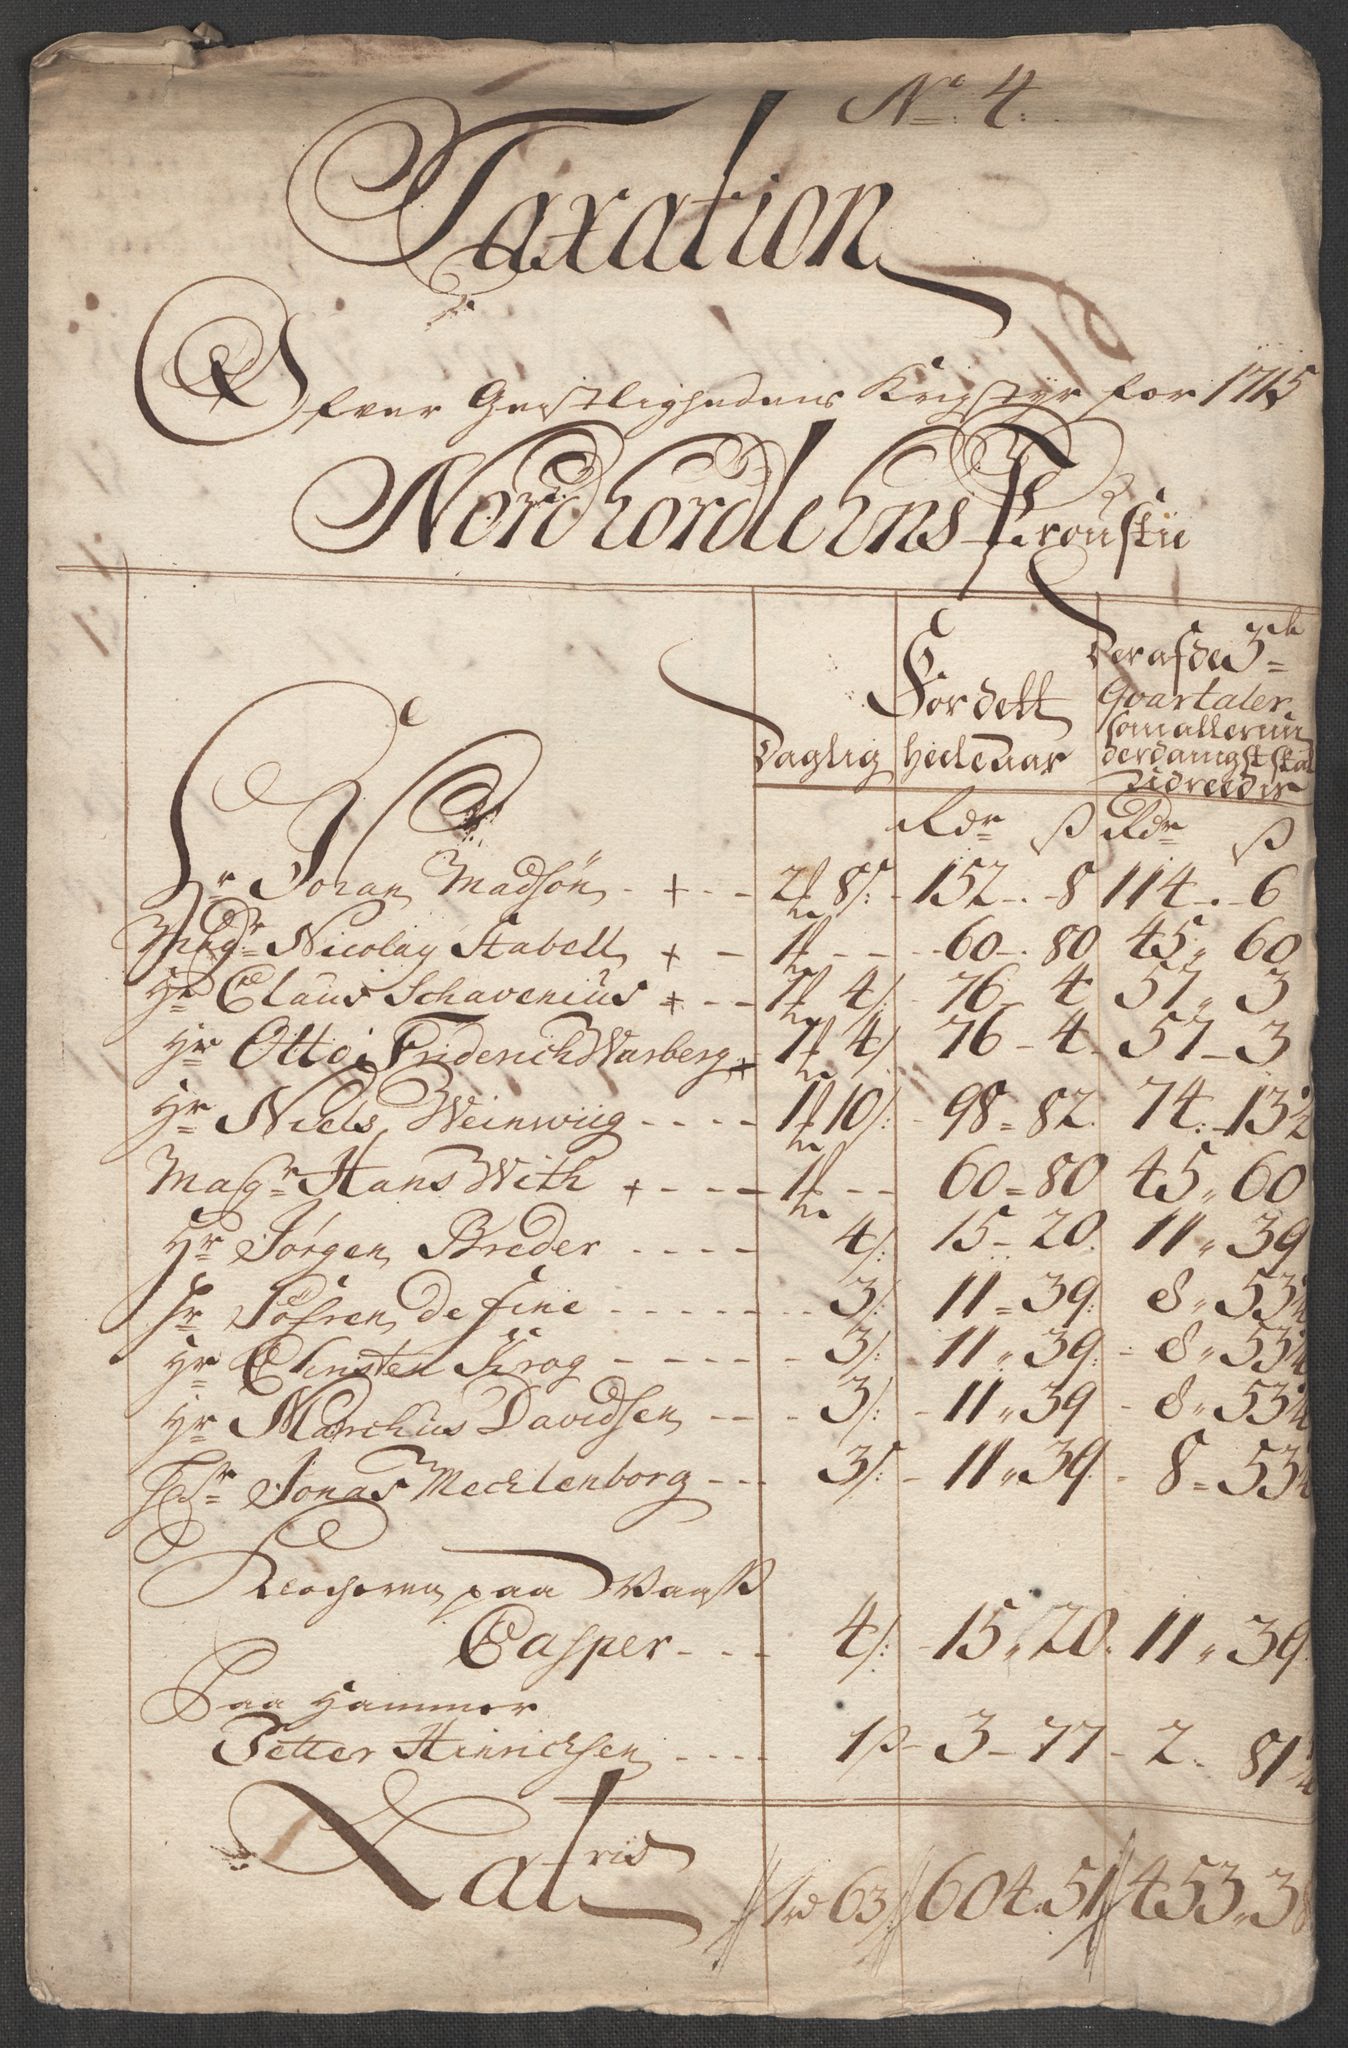 No. 4.
Taxation
Ofver Geistlighedens Krigstyr for 1715
Nordhordlehns Proustii
Daglig
For dett
heele aar
Der af de 3de
Qvartaler
som allerun
derdanigst skal
udreedis
Rdr ß Rdr ß
Hr Johan Madsøn - + - - 2 8 ß: - 152 - . - 8 114 - . - 6
Magr Nicolay Stabell + - 1 - - - 60 - . 80 45 „ 60
Hr Claus Schavenius + - - 1 4 ß: - 76 - 4 57 „ 3
Hr Otto Friderich Warberg + 1 4 ß 76 - 4 - 57 - 3
Hr Niels Weinwiig - - - - 1 10 ß: - 98 = 82. 74. - 13½
Magr Hans With + - - - 1 - - 60 = 80 45 „ 60
Hr Jørgen Breder - - - - 4 ß: 15 - 20. 11 „ 39
Hr Søfren de fine - - - - - - 3 ß: 11 = 39: 8 „ 53¼
Hr Christen Krog - - - - - 3 ß: 11 „ 39: - 8 „ 53¼
Hr Marchus Davidsen - - - 3 ß: - 11 „ 39 - 8 „ 53¼
Hr Jonas Mecklenborg - - - 3 ß: - 11 „ 39 - 8 = 53¼
Klocheren paa Vanß
Casper - - - 4 ß: - 15 „ 20. 11 „ 39
Paa Hammer
Petter Hinrichsen - - - - 1 ß - 3 - 77 - 2. 81¼
Lateris 1 rd 63 ß 604. 51 453 „ 38